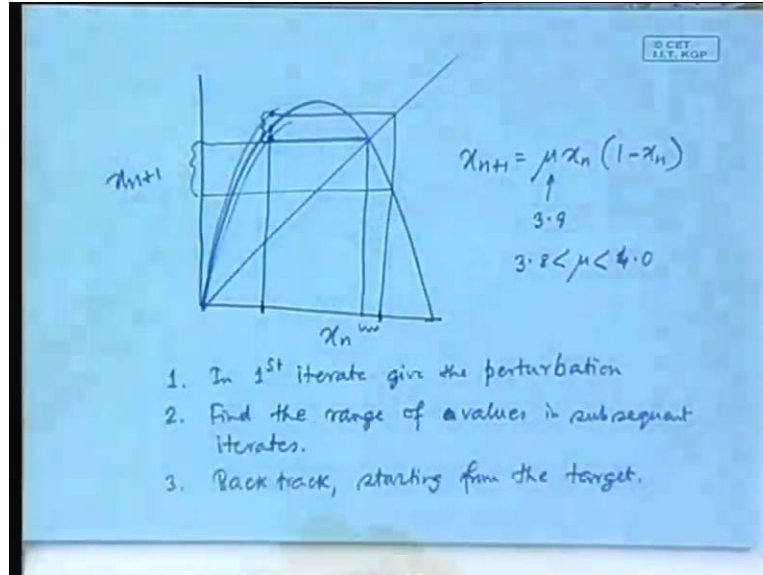 © CET
I.I.T. KGP
xn+1
xn+1 = μ xn (1-xn)
↑
3.9
3.8 < μ < 4.0
xn
1. In 1st iterate give the perturbation
2. Find the range of values in subsequent
iterates.
3. Back track, starting from the target.